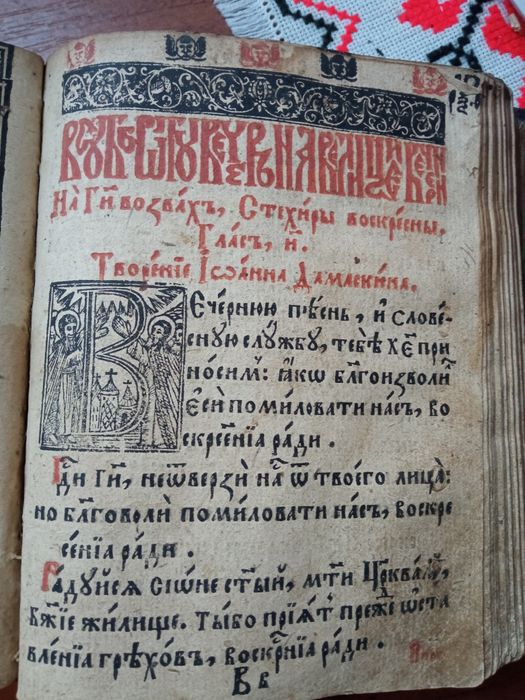 В СУББѠТУ ВЕЧЕРЪ НА ВЕЛИЦѢЙ ВЕЧЕРНИ
На Гⷭ҇и возва́хъ, Стехи́ры воскре́сны,
Гла́съ, и҃.
Творе́нїе Іѡа́нна Дамаски́на.
Вече́рнюю пѣ́снь, и҆ слове́-
сную слу́жбу, тебѣ̀ хс҃е при
но́симъ: ꙗ҆́кѡ бл҃гоизво́ли
є҆сѝ поми́ловати на́съ, во
скресе́нїѧ ра́ди.
Гдⷭ҇и Гдⷭ҇и, неѿве́рзи на́съ ѿ твоегѡ̀ лица̀:
но бл҃говолѝ поми́ловати на́съ, воскре
се́нїѧ ра́ди.
Ра́дуйсѧ сїѡ́не ст҃ы́й, мт҃и Цр҃ква́мъ,
бж҃їе жили́ще. Ты́бо прїѧ́тъ пре́жде ѡ҆ста
вле́нїѧ грѣхо́въ, воскрⷭ҇нїѧ ра́ди.
Вв